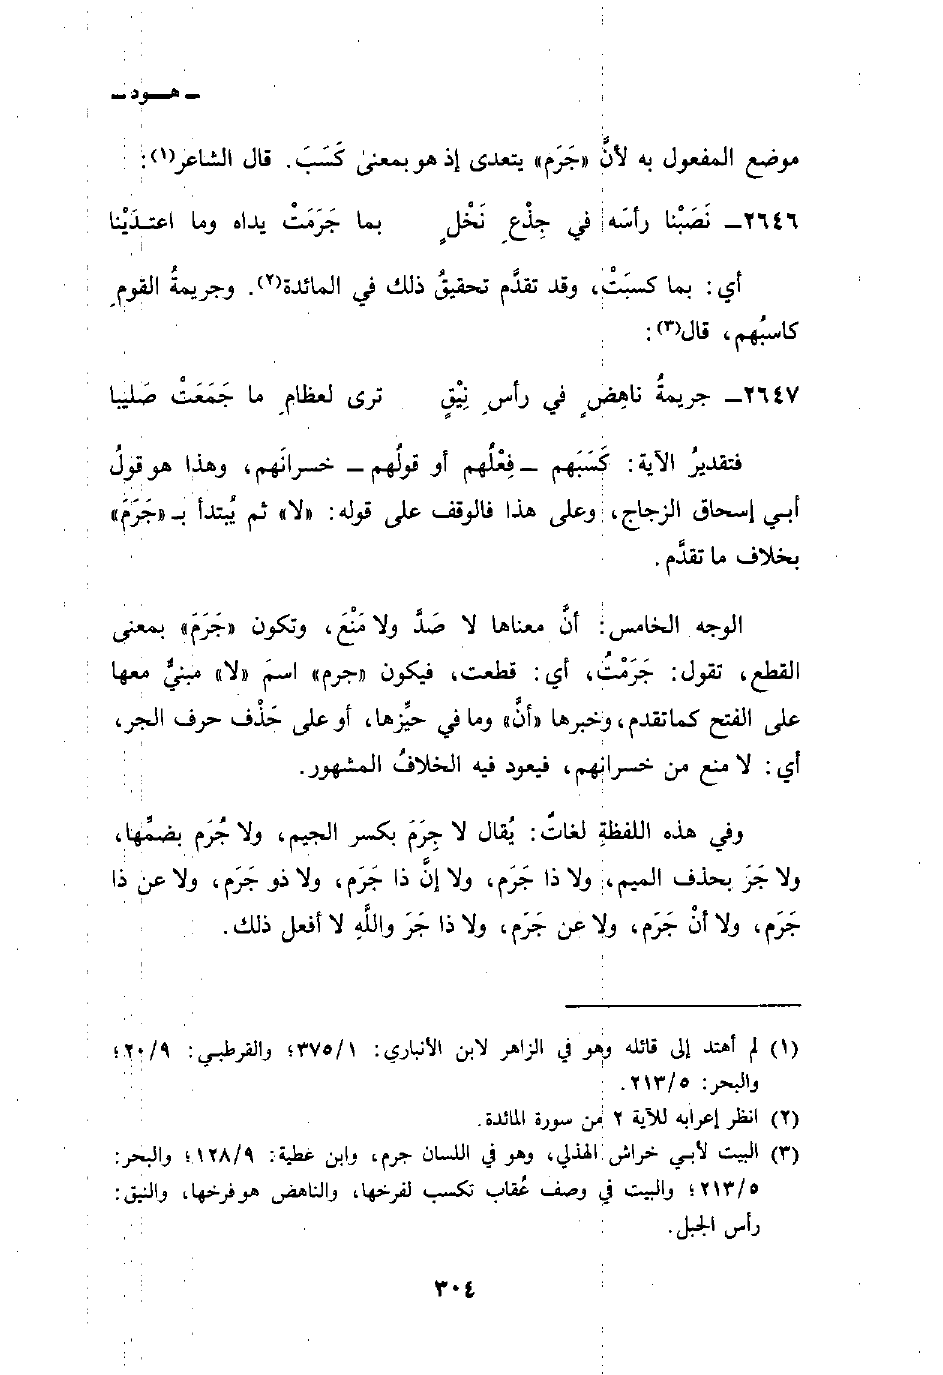 ـ هـــود ـ
موضع المفعول به لأنَّ «جَرَم» يتعدى إذ هو بمعنىٰ كَسَبَ. قال الشاعر(١):
٢٦٤٦ـ نَصَبْنا رأسَه في جِذْعِ نَخْلٍ بما جَرَمَتْ يداه وما اعتـدَيْنا
أي: بما كسبَتْ، وقد تقدَّم تحقيقُ ذلك في المائدة(٢). وجريمةُ القومِ
كاسبُهم، قال(٣):
٢٦٤٧ـ جريمةُ ناهِضٍ في رأسِ نِيْقٍ ترى لعظامِ ما جَمَعَتْ صَليبا
فتقديرُ الآية: كَسَبَهم ـ فِعْلُهم أو قولُهم ـ خسرانَهم، وهذا هو قولُ
أبي إسحاق الزجاج، وعلى هذا فالوقف على قوله: «لا» ثم يُبتدأ بـ «جَرَمَ»
بخلاف ما تقدَّم.
الوجه الخامس: أنَّ معناها لا صَدَّ ولا مَنْعَ، وتكون «جَرَمَ» بمعنى
القطع، تقول: جَرَمْتُ، أي: قطعت، فيكون «جرم» اسمَ «لا» مبنيٌّ معها
على الفتح كما تقدم، وخبرها «أنَّ» وما في حيِّزها، أو على حَذْف حرف الجر،
أي: لا منع من خسرانهم، فيعود فيه الخلافُ المشهور.
وفي هذه اللفظةِ لغاتٌ: يُقال لا جِرَمَ بكسر الجيم، ولا جُرَم بضمِّها،
ولا جَرَ بحذف الميم، ولا ذا جَرَم، ولا إنَّ ذا جَرَم، ولا ذو جَرَم، ولا عن ذا
جَرَم، ولا أنْ جَرَم، ولا عن جَرَم، ولا ذا جَرَ واللَّهِ لا أفعل ذلك.
(١) لم أهتد إلى قائله وهو في الزاهر لابن الأنباري: ٣٧٥/١؛ والقرطبي: ٢٠/٩؛
والبحر: ٢١٣/٥.
(٢) انظر إعرابه للآية ٢ من سورة المائدة.
(٣) البيت لأبي خراش الهذلي، وهو في اللسان جرم، وابن عطية: ١٢٨/٩؛ والبحر:
٢١٣/٥؛ والبيت في وصف عُقاب تكسب لفرخها، والناهض هو فرخها، والنيق:
رأس الجبل.
٣٠٤